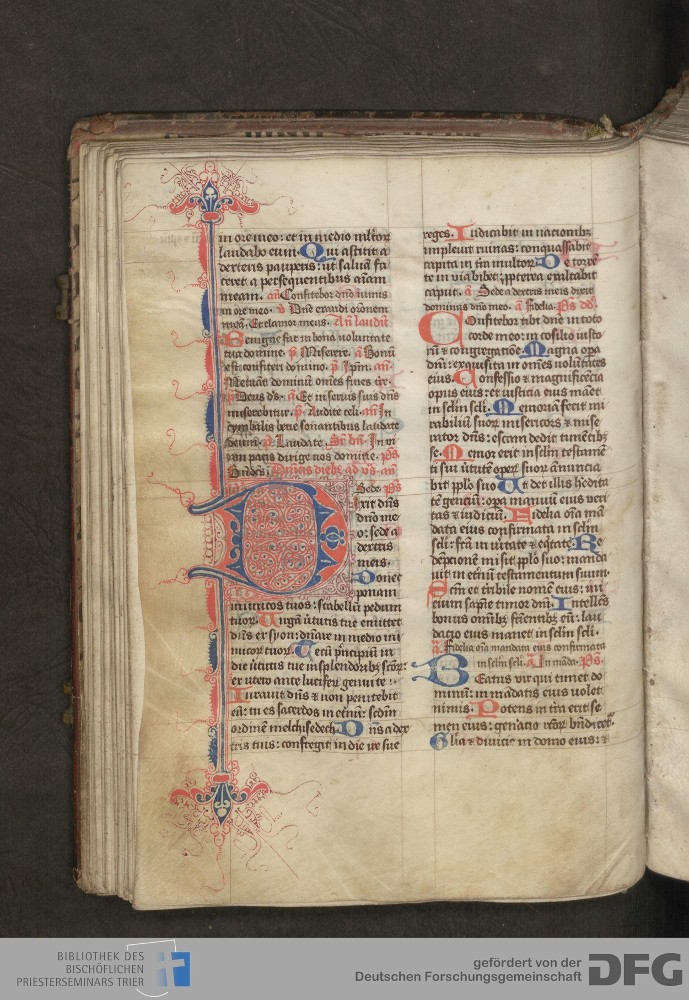 in ore meo: et in medio mltor
laudabo eum. Qui astitit a
dextris pauperis: ut saluā fa
ceret a persequentibus aīam
meam. an̄ Confitebor dn̄o nimis
in ore meo. v̄ Dn̄e exaudi oronem
meā. Et clamor meus. Ad laudes
Benigne fac in bona voluntate
tua domine. p̄ Miserere. a̅ Bonū
est confiteri domino. p̄ Ip̄m. an̄
Metuāt dominū om̄es fines tr̄e.
p̄ Deus ds. a̅ Et in seruis suis dn̄s
miserebitur. p̄ Audite celi. an̄ In
cymbalis bene sonantibus laudate
deum. p̄ Laudate. In vi
am pacis dirige nos domine. ps̄
Bn̄dcs. Dn̄icis dieb; ad vs̄. an̄
Sede. ps̄
Dixit dn̄s
dn̄o me
o: sede a
dextris
meis.
Donec
ponam
inimicos tuos: scabellū pedum
tuor. Uirgā uirtutis tue emittet
dn̄s ex syon: dn̄are in medio ini
micor tuor. Tecū pͥncipiū in
die uirtutis tue in splendorib; scōr:
ex utero ante lucifer genui te:
Iurauit dn̄s & non penitebit
eū: tu es sacerdos in etnū: scdm
ordinē melchisedech. Dn̄s a dex
tris tuis: confregit in die ire sue
reges. Iudicabit in nationib;
impleuit ruinas: conquassabit
capita in t̄ra multor. De torrē
te in via bibet: ꝓpterea exaltabit
caput. a̅ Sede a dextris meis dixit
dominus dn̄o meo. a̅ Fidelia. Ps̄
Confitebor tibi dn̄e in toto
corde meo: in cōsilio iusto
rū & congregatiōe. Magna opa
dn̄i: exquisita in om̄es volūtates
eius. Confessio & magnificēcia
opus eius: et iusticia eius manet
in sclm scli. Memoriā fecit mi
rabiliū suor misericors & mise
rator dn̄s: escam dedit timētib;
se. Memor erit in sclm testamē
ti sui uirtutē oper suor ānuncia
bit ppl̄o suo. Ut det illis hedita
tē gentiū: opa manuū eius veri
tas & iudiciū. Fidelia oīa mā
data eius confirmata in sclm
scli: fcā in ūitate & eqtate. Re
dēpcionē misit ppl̄o suo: manda
uit in etnū testamentum suum.
Scm̄ et tribile nomē eius: ini
cium sapīe timor dn̄i. Intelle͡ts
bonus om̄ib; facientib; eū: lau
datio eius manet in sclm scli.
a̅ Fidelia oīa mandata eius confirmata
in sclm scli. a̅ In māda. ps̄
Beatus vir qui timet do
minū: in mādatis eius uolet
nimis. Potens in t̄ra erit se
men eius: gen̄atio rc̄or bn̄dicet.
Glīa & diuicie in domo eius: &
BIBLIOTHEK DES
BISCHÖFLICHEN
PRIESTERSEMINARS TRIER
gefördert von der
Deutschen Forschungsgemeinschaft
DFG